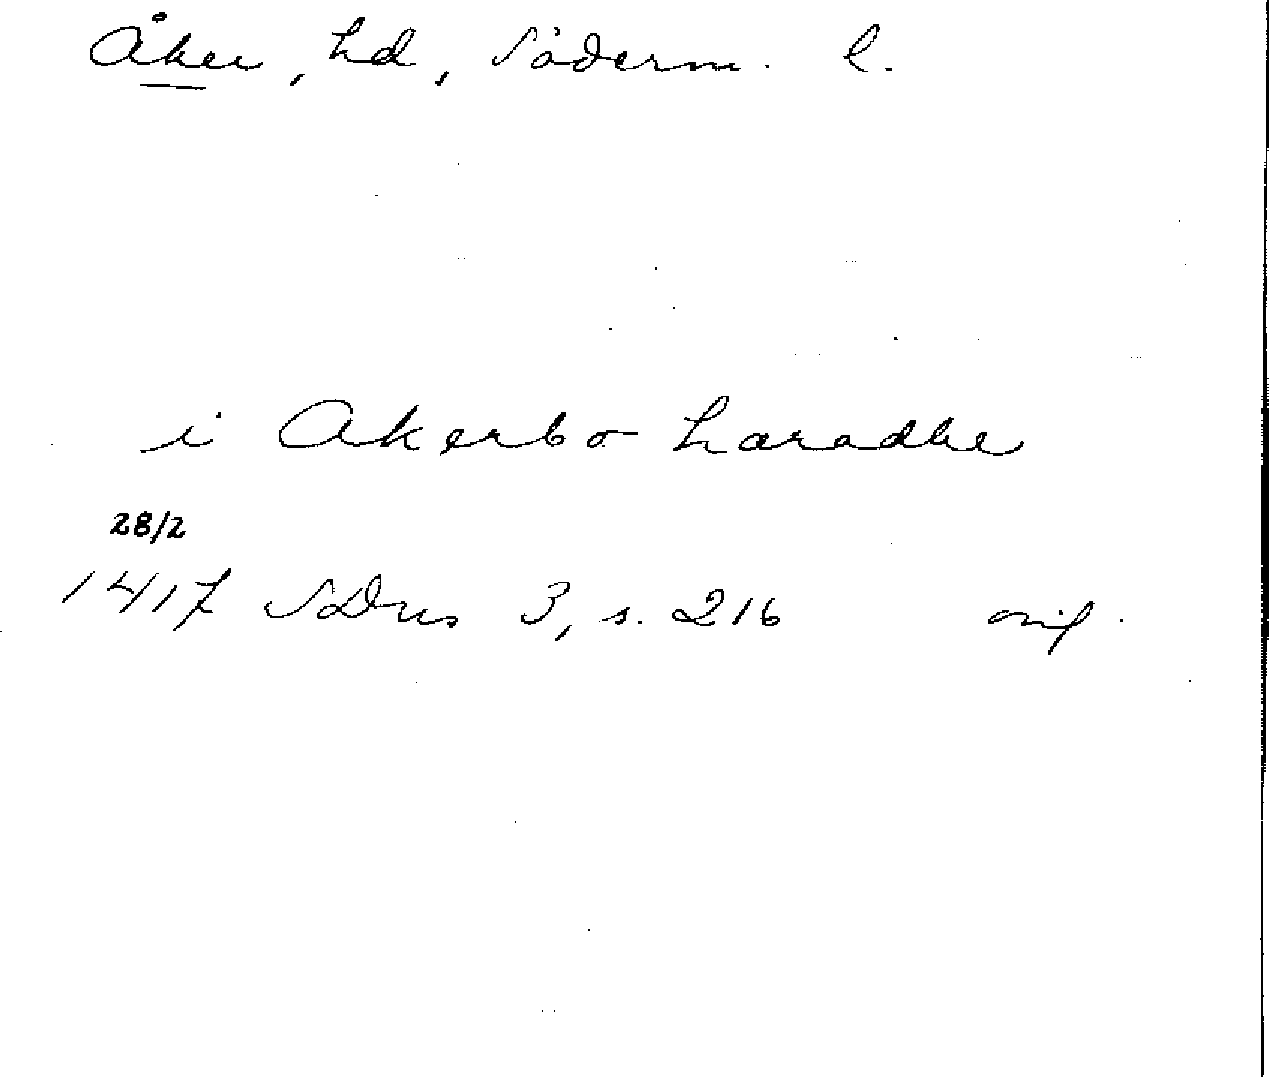 Åker, hd, Söderm. l.
i Akerbo haradhe
28/2
1417 SDns 3, s. 216 orig.